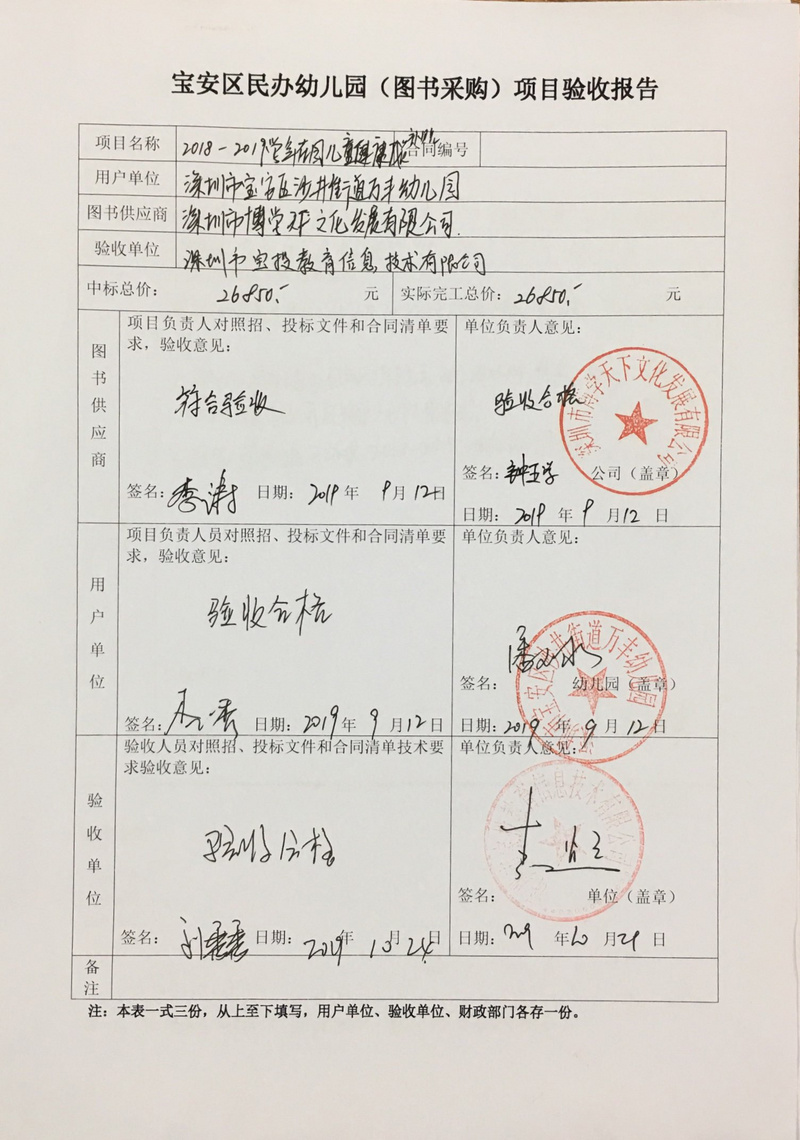 宝安区民办幼儿园（图书采购）项目验收报告
项目名称 2018-2019学年在园儿童健康成长补贴 合同编号
用户单位 深圳市宝安区沙井街道万丰幼儿园
图书供应商 深圳市博学天下文化发展有限公司
验收单位 深圳市宝投教育信息技术有限公司
中标总价： 26850.- 元 实际完工总价： 26850.- 元
图书供应商
项目负责人对照招、投标文件和合同清单要
求，验收意见：
符合验收
签名： 李涛 日期： 2019 年 9 月 12 日
单位负责人意见：
验收合格
深圳市博学天下文化发展有限公司
签名： 公司（盖章）
日期： 2019 年 9 月 12 日
用户单位
项目负责人员对照招、投标文件和合同清单要
求，验收意见：
验收合格
签名： 日期： 2019 年 9 月 12 日
单位负责人意见：
宝安区沙井街道万丰幼儿园
签名： 幼儿园（盖章）
日期： 2019 年 9 月 12 日
验收单位
验收人员对照招、投标文件和合同清单技术要
求验收意见：
验收合格
签名： 日期： 2019 年 10 月 24 日
单位负责人意见：
信息技术有限公司
签名： 单位（盖章）
日期： 2019 年 10 月 29 日
备注
注：本表一式三份，从上至下填写，用户单位、验收单位、财政部门各存一份。